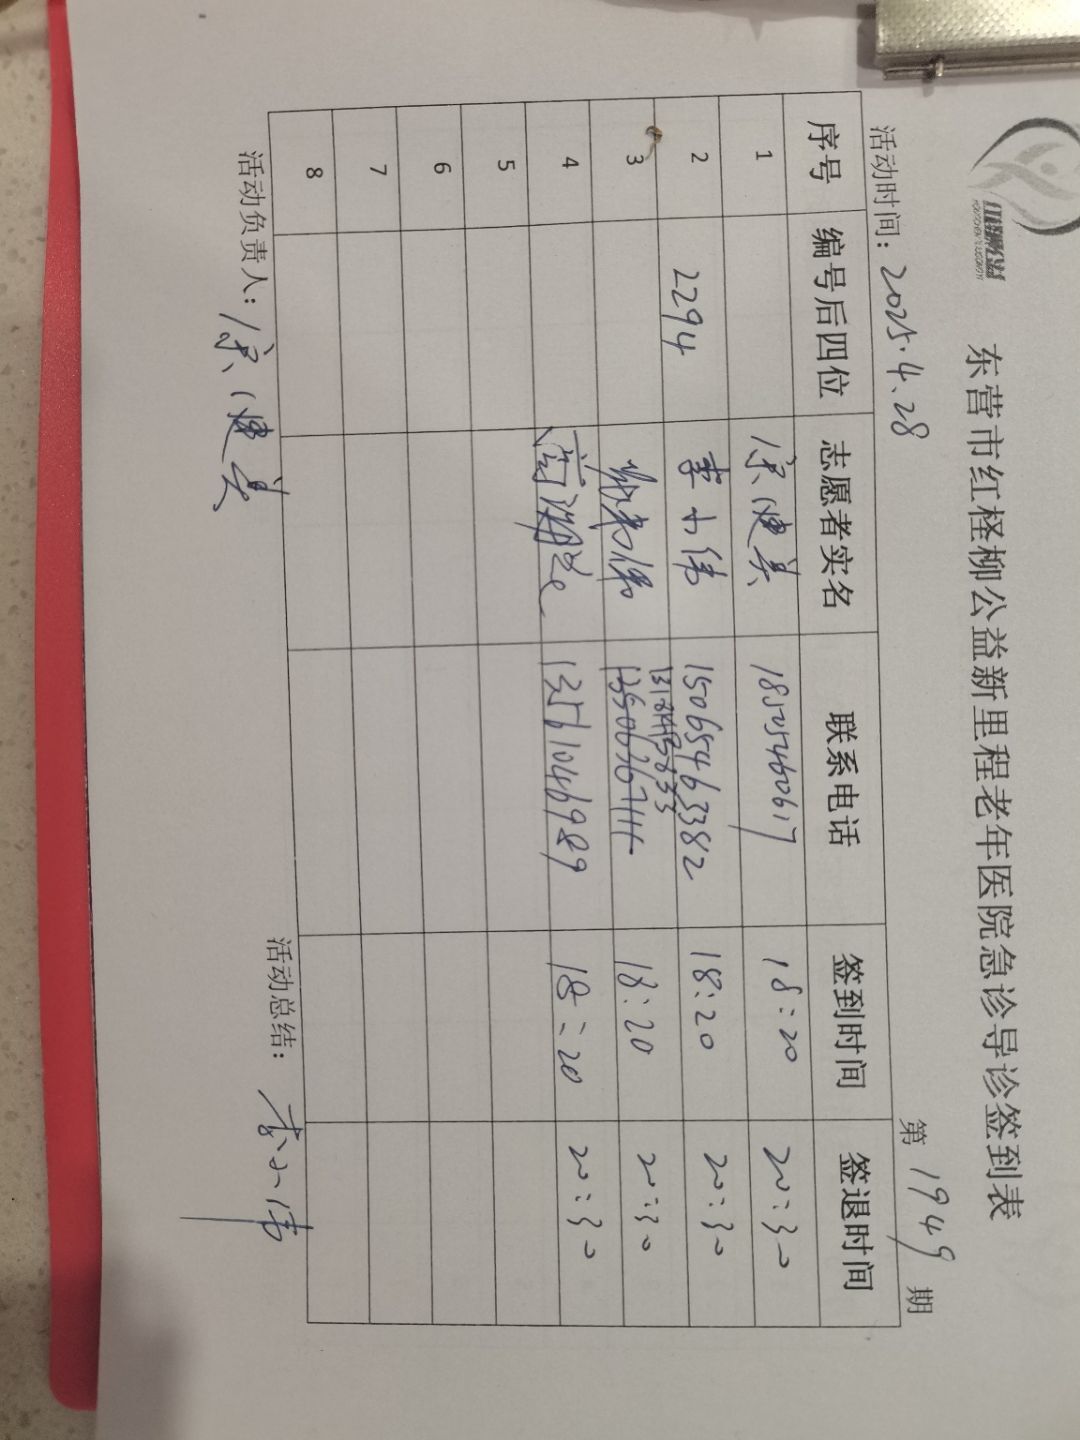 东营市红柽柳公益新里程老年医院急诊导诊签到表
第 1949 期
活动时间：2025.4.28
序号 编号后四位 志愿者实名 联系电话 签到时间 签退时间
1 18:20 20:30
2 2294 李小伟 15065463382 18:20 20:30
3 18:20 20:30
4 13561046989 18:20 20:30
5
6
7
8
活动负责人：
活动总结：李小伟